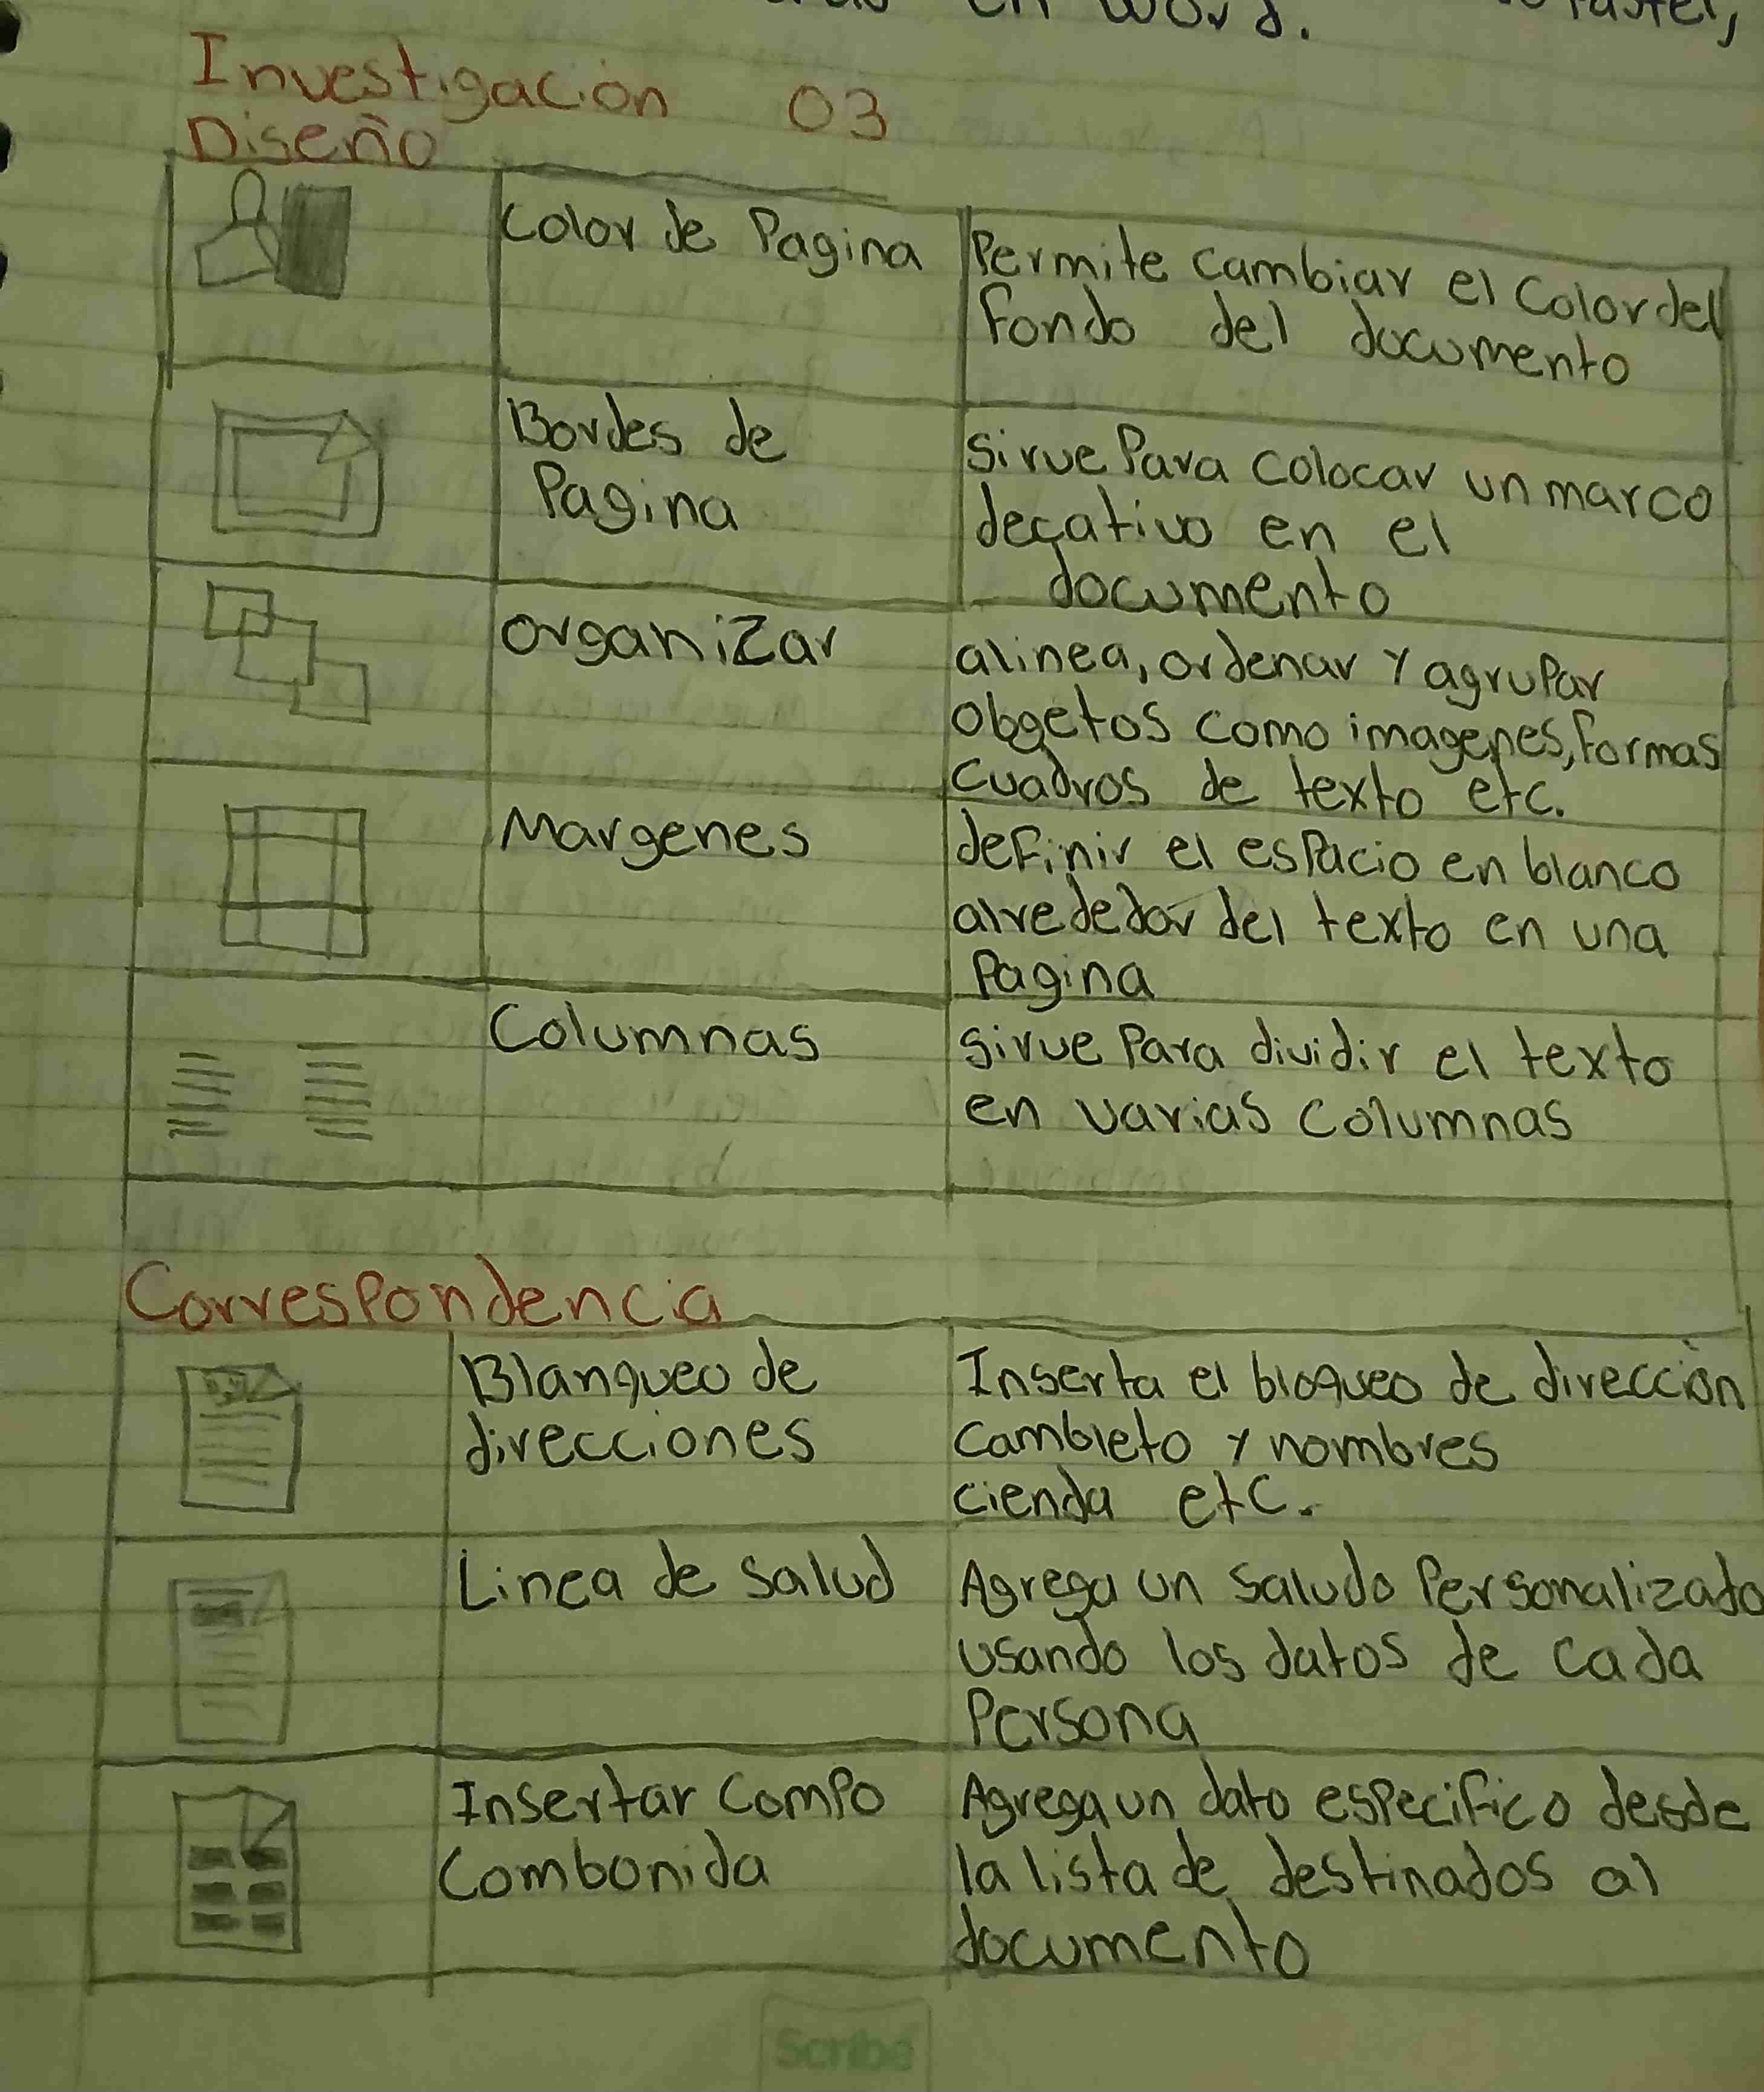 en word.
Investigación 03
Diseño
Color de Pagina
Permite cambiar el Color del
fondo del documento
Bordes de
Pagina
Sirve Para colocar un marco
decativo en el
documento
organizar
alinea, ordenar y agrupar
obgetos como imagenes, formas
cuadros de texto etc.
Margenes
definir el espacio en blanco
alrededor del texto en una
Pagina
Columnas
sirve Para dividir el texto
en varias columnas
Correspondencia
Blanqueo de
direcciones
Inserta el bloqueo de dirección
cambleto y nombres
cienda etc.
Linea de salud
Agrega un saludo Personalizado
usando los datos de cada
Persona
Insertar Compo
Combonida
Agrega un dato especifico desde
la lista de destinados al
documento
Scribe